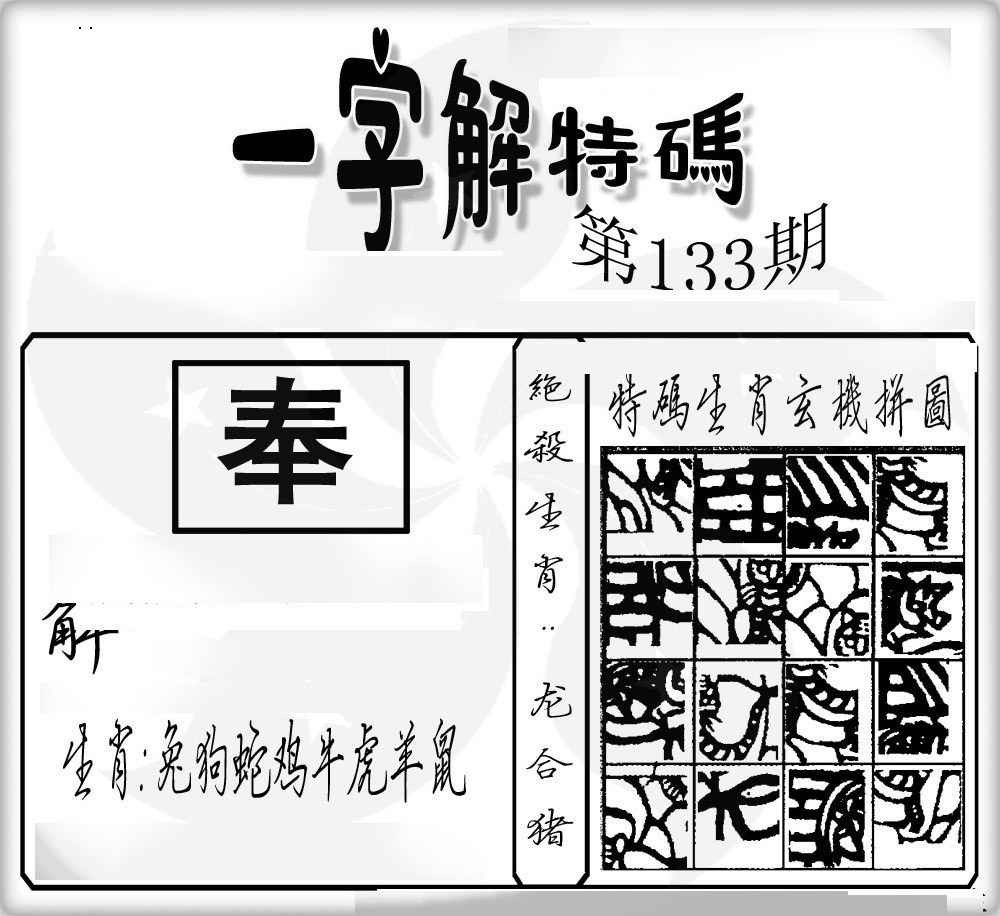 一字解特碼
第133期
奉
解
生肖:兔狗蛇鸡牛虎羊鼠
絕殺生肖:龙合猪
特碼生肖玄機拼圖